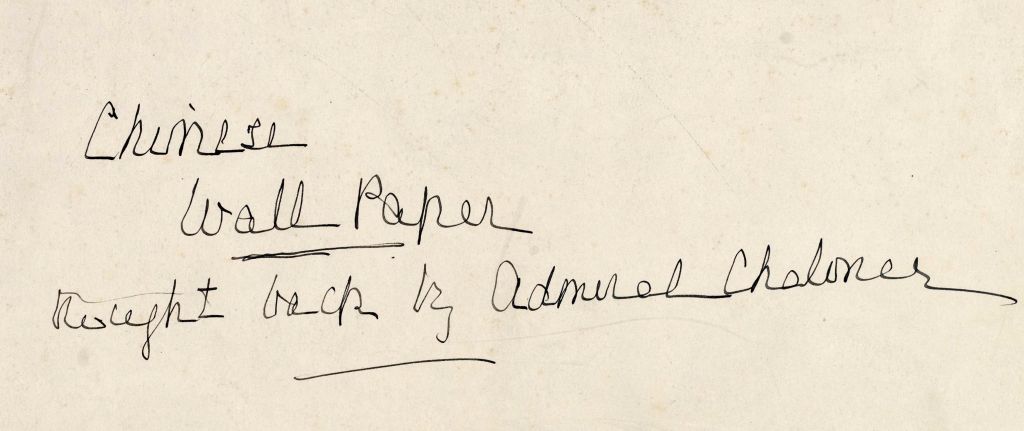 Chinese
Wall Paper
Brought back by Admiral Chaloner